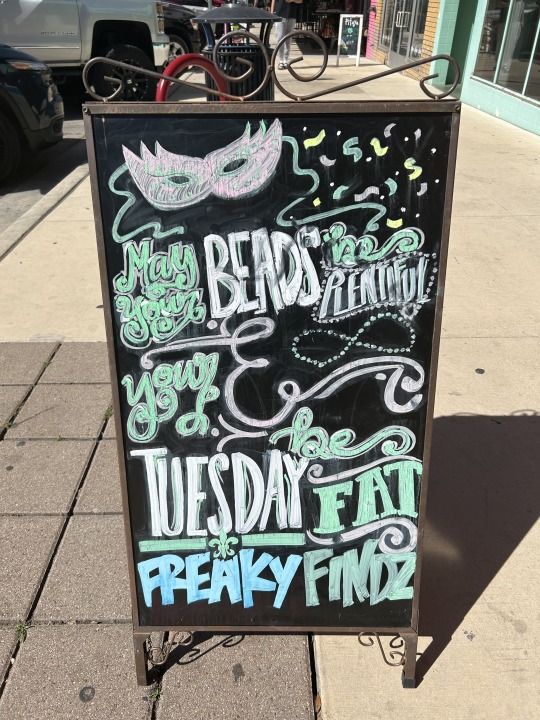 May BEADS be
your PLENTIFUL
your &
be
TUESDAY FAT
FREAKY FINDZ